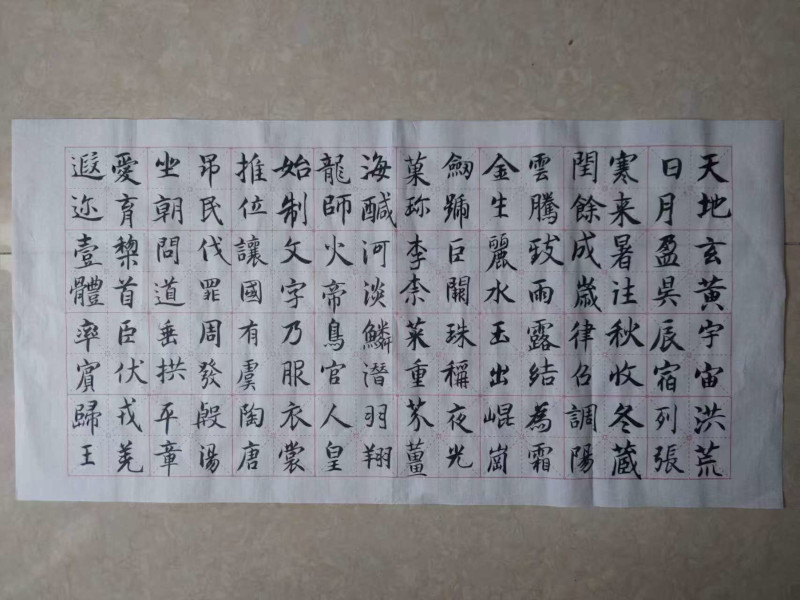 天地玄黃宇宙洪荒
日月盈昃辰宿列張
寒来暑往秋收冬蔵
閏餘成歲律召調陽
雲騰致雨露結為霜
金生麗水玉出崐崗
劒號巨闕珠稱夜光
菓珎李柰菜重芥薑
海醎河淡鱗潛羽翔
龍師火帝鳥官人皇
始制文字乃服衣裳
推位讓國有虞陶唐
吊民伐罪周發殷湯
坐朝問道垂拱平章
愛育黎首臣伏戎羌
遐迩壹體率賓歸王